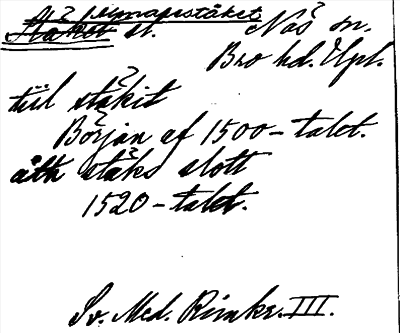 Almarestäket
Stäket sl. Näs sn.
Bro hd. Upl.
till stäkit
Början af 1500-talet.
åth stäks slott
1520-talet.
Sv. Med. Rimkr. III.